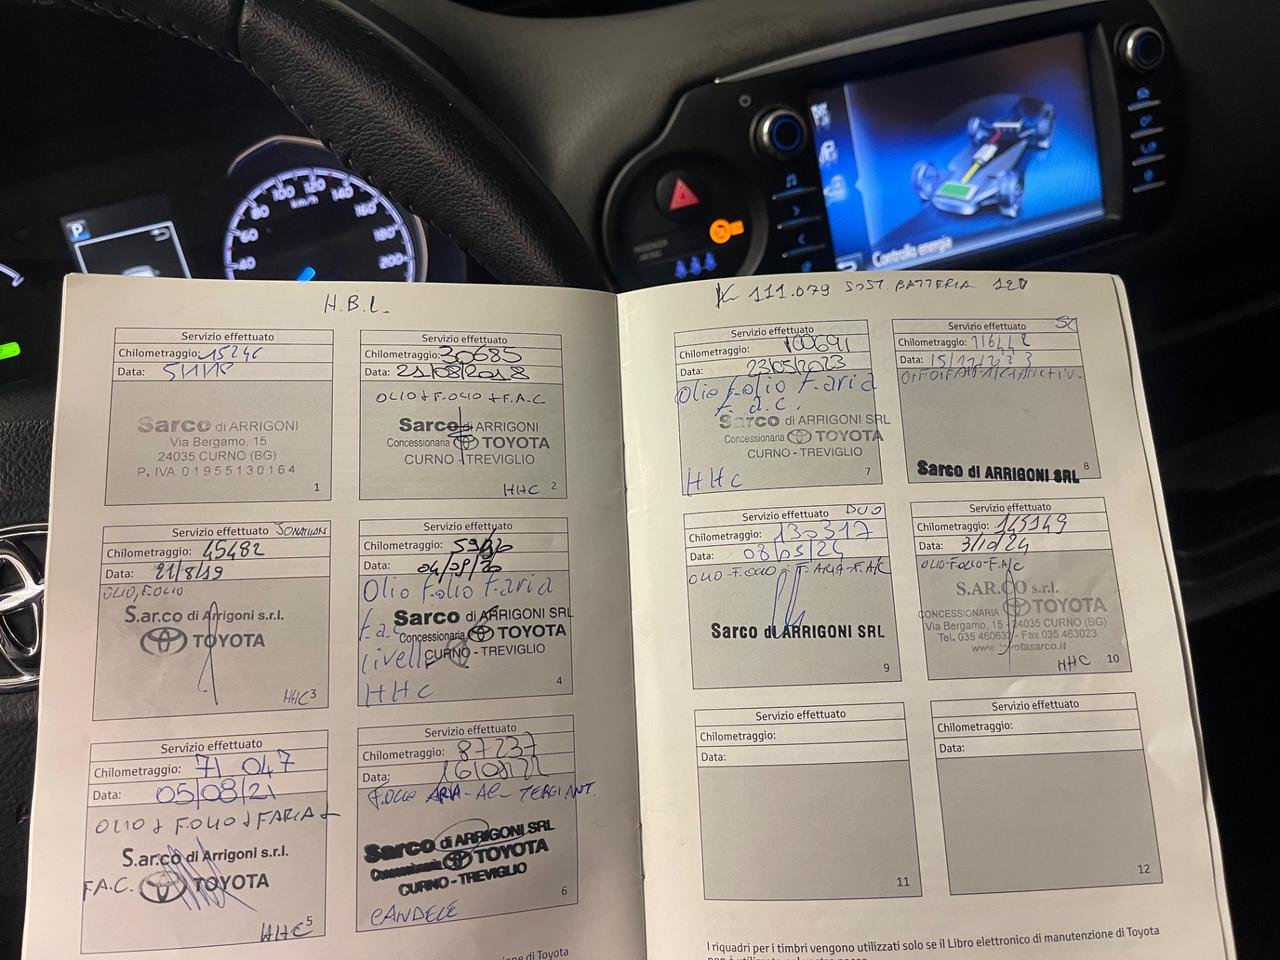 P
40
60
80
100
120
140
160
180
200
km/h
PASSENGER
AIRBAG
Controlla energia
H.B.L.
Servizio effettuato
Chilometraggio: 15246
Data: 5/1/18
Sarco di ARRIGONI
Via Bergamo, 15
24035 CURNO (BG)
P. IVA 01955130164
1
Servizio effettuato
Chilometraggio: 30685
Data: 21/08/2018
OLIO + F.OLIO + F.A.C
Sarco di ARRIGONI
Concessionaria TOYOTA
CURNO - TREVIGLIO
HHC 2
Servizio effettuato JONATHAN
Chilometraggio: 45482
Data: 21/8/19
OLIO, F.OLIO
S.ar.co di Arrigoni s.r.l.
TOYOTA
HHC 3
Servizio effettuato
Chilometraggio:
Data: 04/09/20
Olio F.olio F.aria
F.a.c
Sarco di ARRIGONI SRL
Concessionaria TOYOTA
Livelli
CURNO - TREVIGLIO
HHC 4
Servizio effettuato
Chilometraggio: 71 047
Data: 05/08/21
OLIO + F.OLIO + F.ARIA +
S.ar.co di Arrigoni s.r.l.
F.A.C. TOYOTA
HHC 5
Servizio effettuato
Chilometraggio: 87237
Data:
F.OLIO ARIA - AC - TERGI ANT.
Sarco di ARRIGONI SRL
Concessionaria TOYOTA
CURNO - TREVIGLIO
6
CANDELE
K 111.079 SOST. BATTERIA 12V
Servizio effettuato
Chilometraggio: 100691
Data: 23/05/2023
Olio F.olio F.aria
F.a.c.
Sarco di ARRIGONI SRL
Concessionaria TOYOTA
CURNO - TREVIGLIO
HHC 7
Servizio effettuato
Chilometraggio: 116442
Data: 15/12/2023
Sarco di ARRIGONI SRL 8
Servizio effettuato
Chilometraggio: 130317
Data: 08/05/24
OLIO - F.OLIO - F.ARIA - F.A/C
Sarco di ARRIGONI SRL
9
Servizio effettuato
Chilometraggio: 145149
Data: 3/10/24
OLIO - F.OLIO - F.A/C
S.AR.CO s.r.l.
CONCESSIONARIA TOYOTA
Via Bergamo, 15 - 24035 CURNO (BG)
Tel. 035 460632 - Fax 035 463023
www.toyotasarco.it
HHC 10
Servizio effettuato
Chilometraggio:
Data:
11
Servizio effettuato
Chilometraggio:
Data:
12
zione di Toyota
I riquadri per i timbri vengono utilizzati solo se il Libro elettronico di manutenzione di Toyota